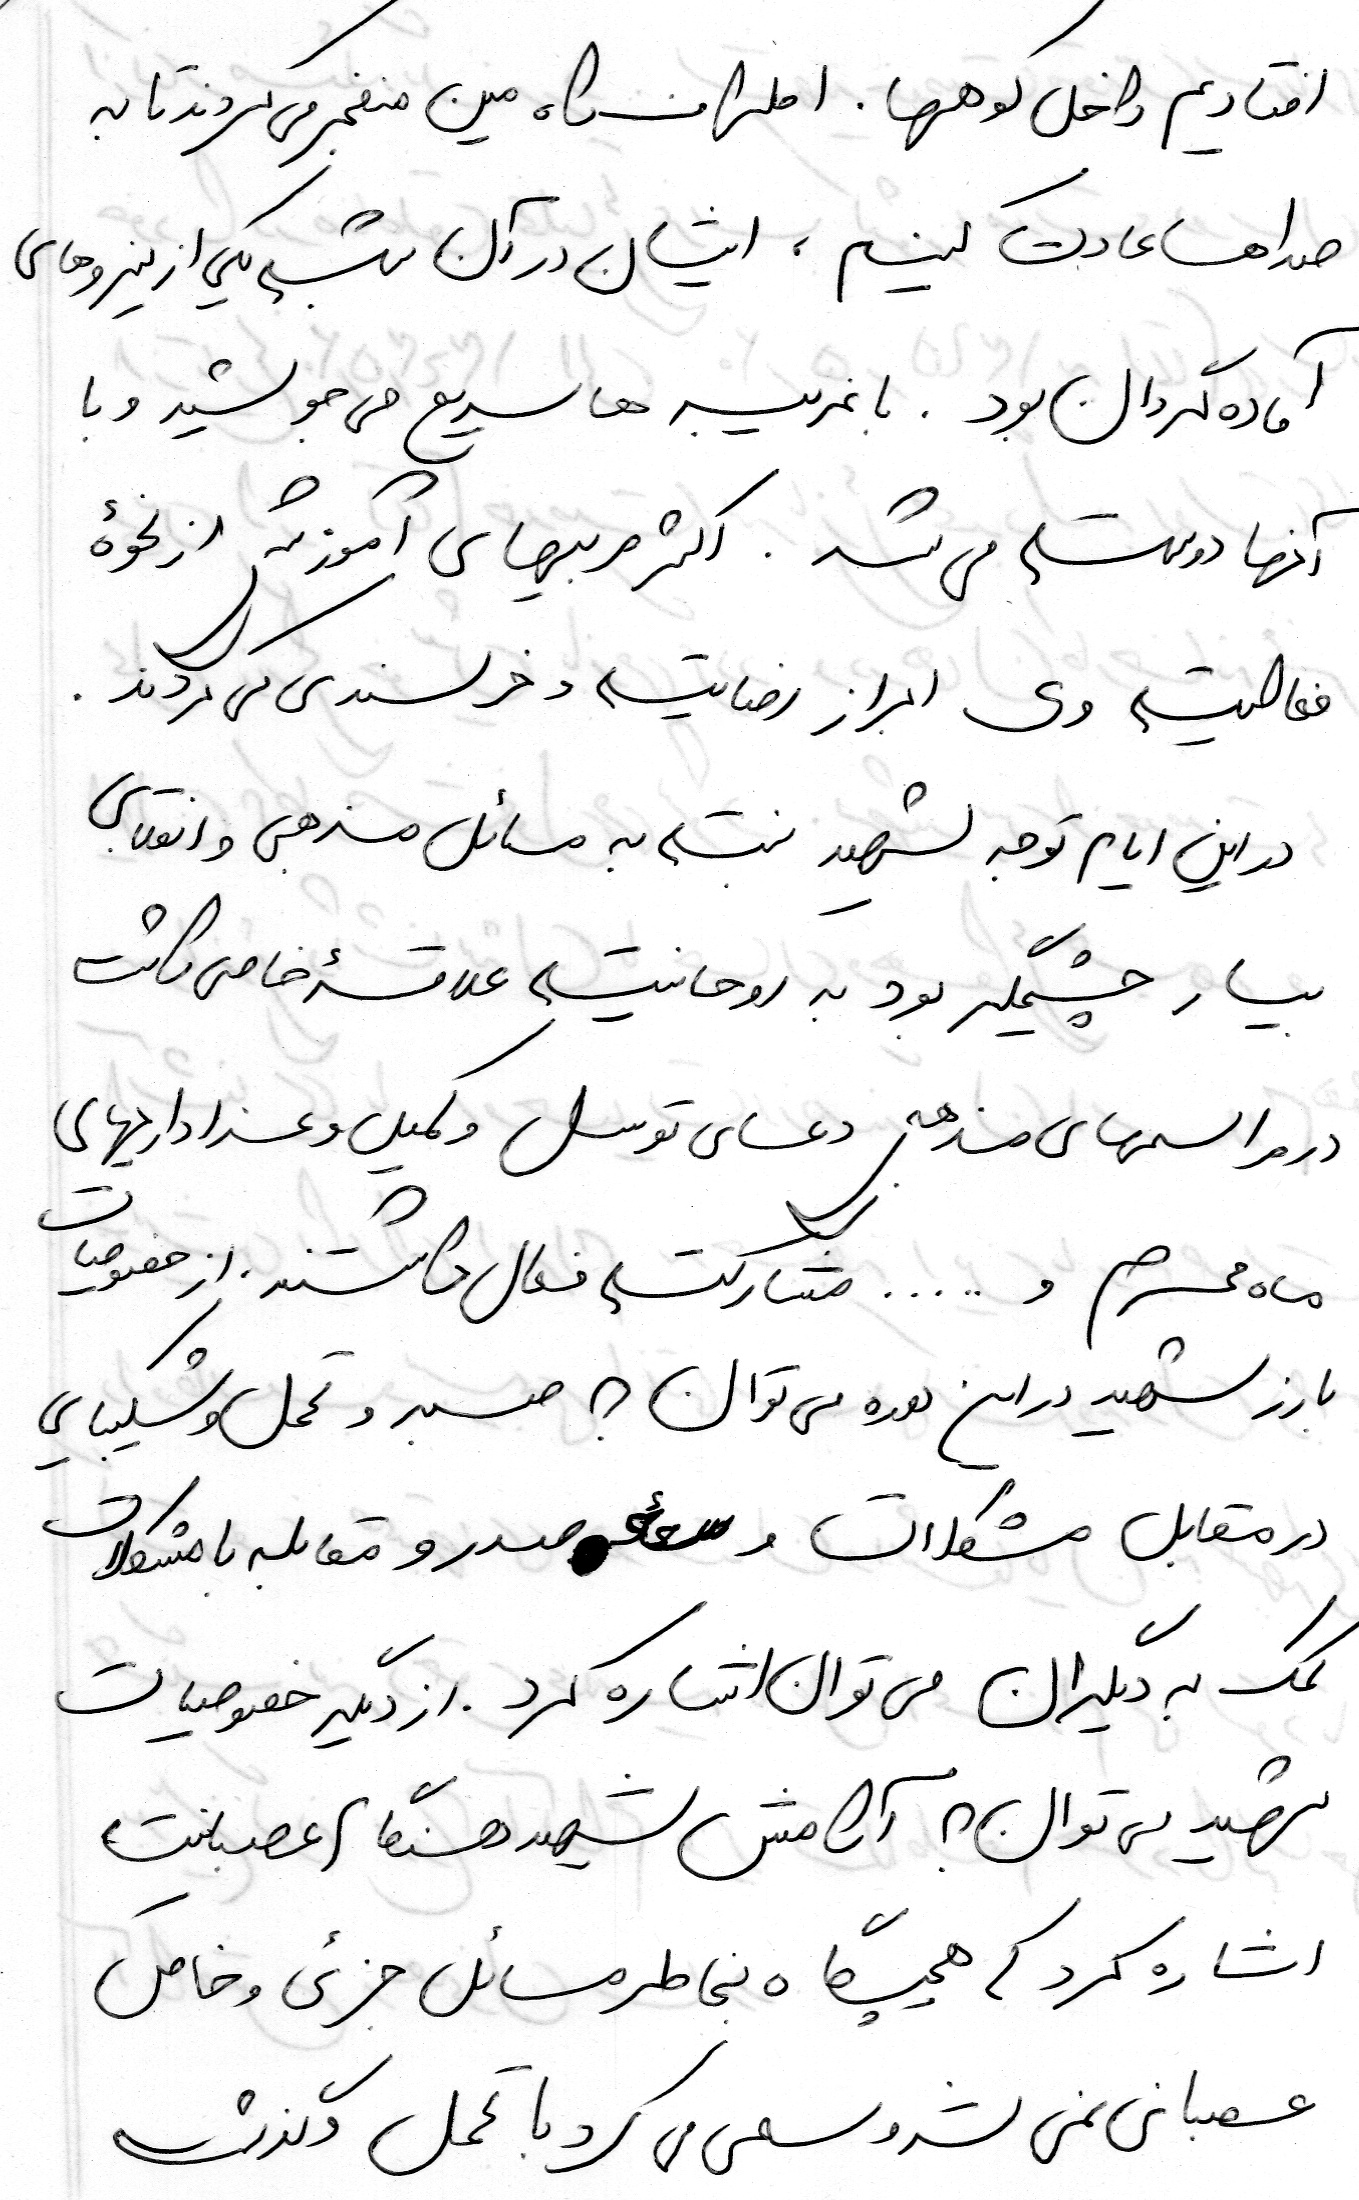 افتادیم داخل کوهها. اطراف ستاد مین منفجر می کردند تا به
صداها عادت کنیم، ایشان در آن شب یکی از نیروهای
آماده گردان بود. با غریبه ها سریع می جوشید و با
آنها دوست می شد. اکثر مربیهای آموزشی از نحوهٔ
فعالیت وی ابراز رضایت و خرسندی می کردند.
در این ایام توجه شهید نسبت به مسائل مذهبی و انقلابی
بسیار چشمگیر بود به روحانیت علاقهٔ خاصی داشت
در مراسمهای مذهبی دعای توسل و کمیل و عزاداریهای
ماه محرم و ..... مشارکت فعال داشتند. از خصوصیات
بارز شهید در این دوره می توان به صبر و تحمل و شکیبایی
در مقابل مشکلات و سعهٔ صدر و مقابله با مشکلات
کمک به دیگران می توان اشاره کرد. از دیگر خصوصیات
شهید می توان به آرامش شهید هنگام عصبانیت
اشاره کرد که هیچگاه بخاطر مسائل جزئی و خاص
عصبانی نمی شد و سعی می کرد با تحمل و گذشت